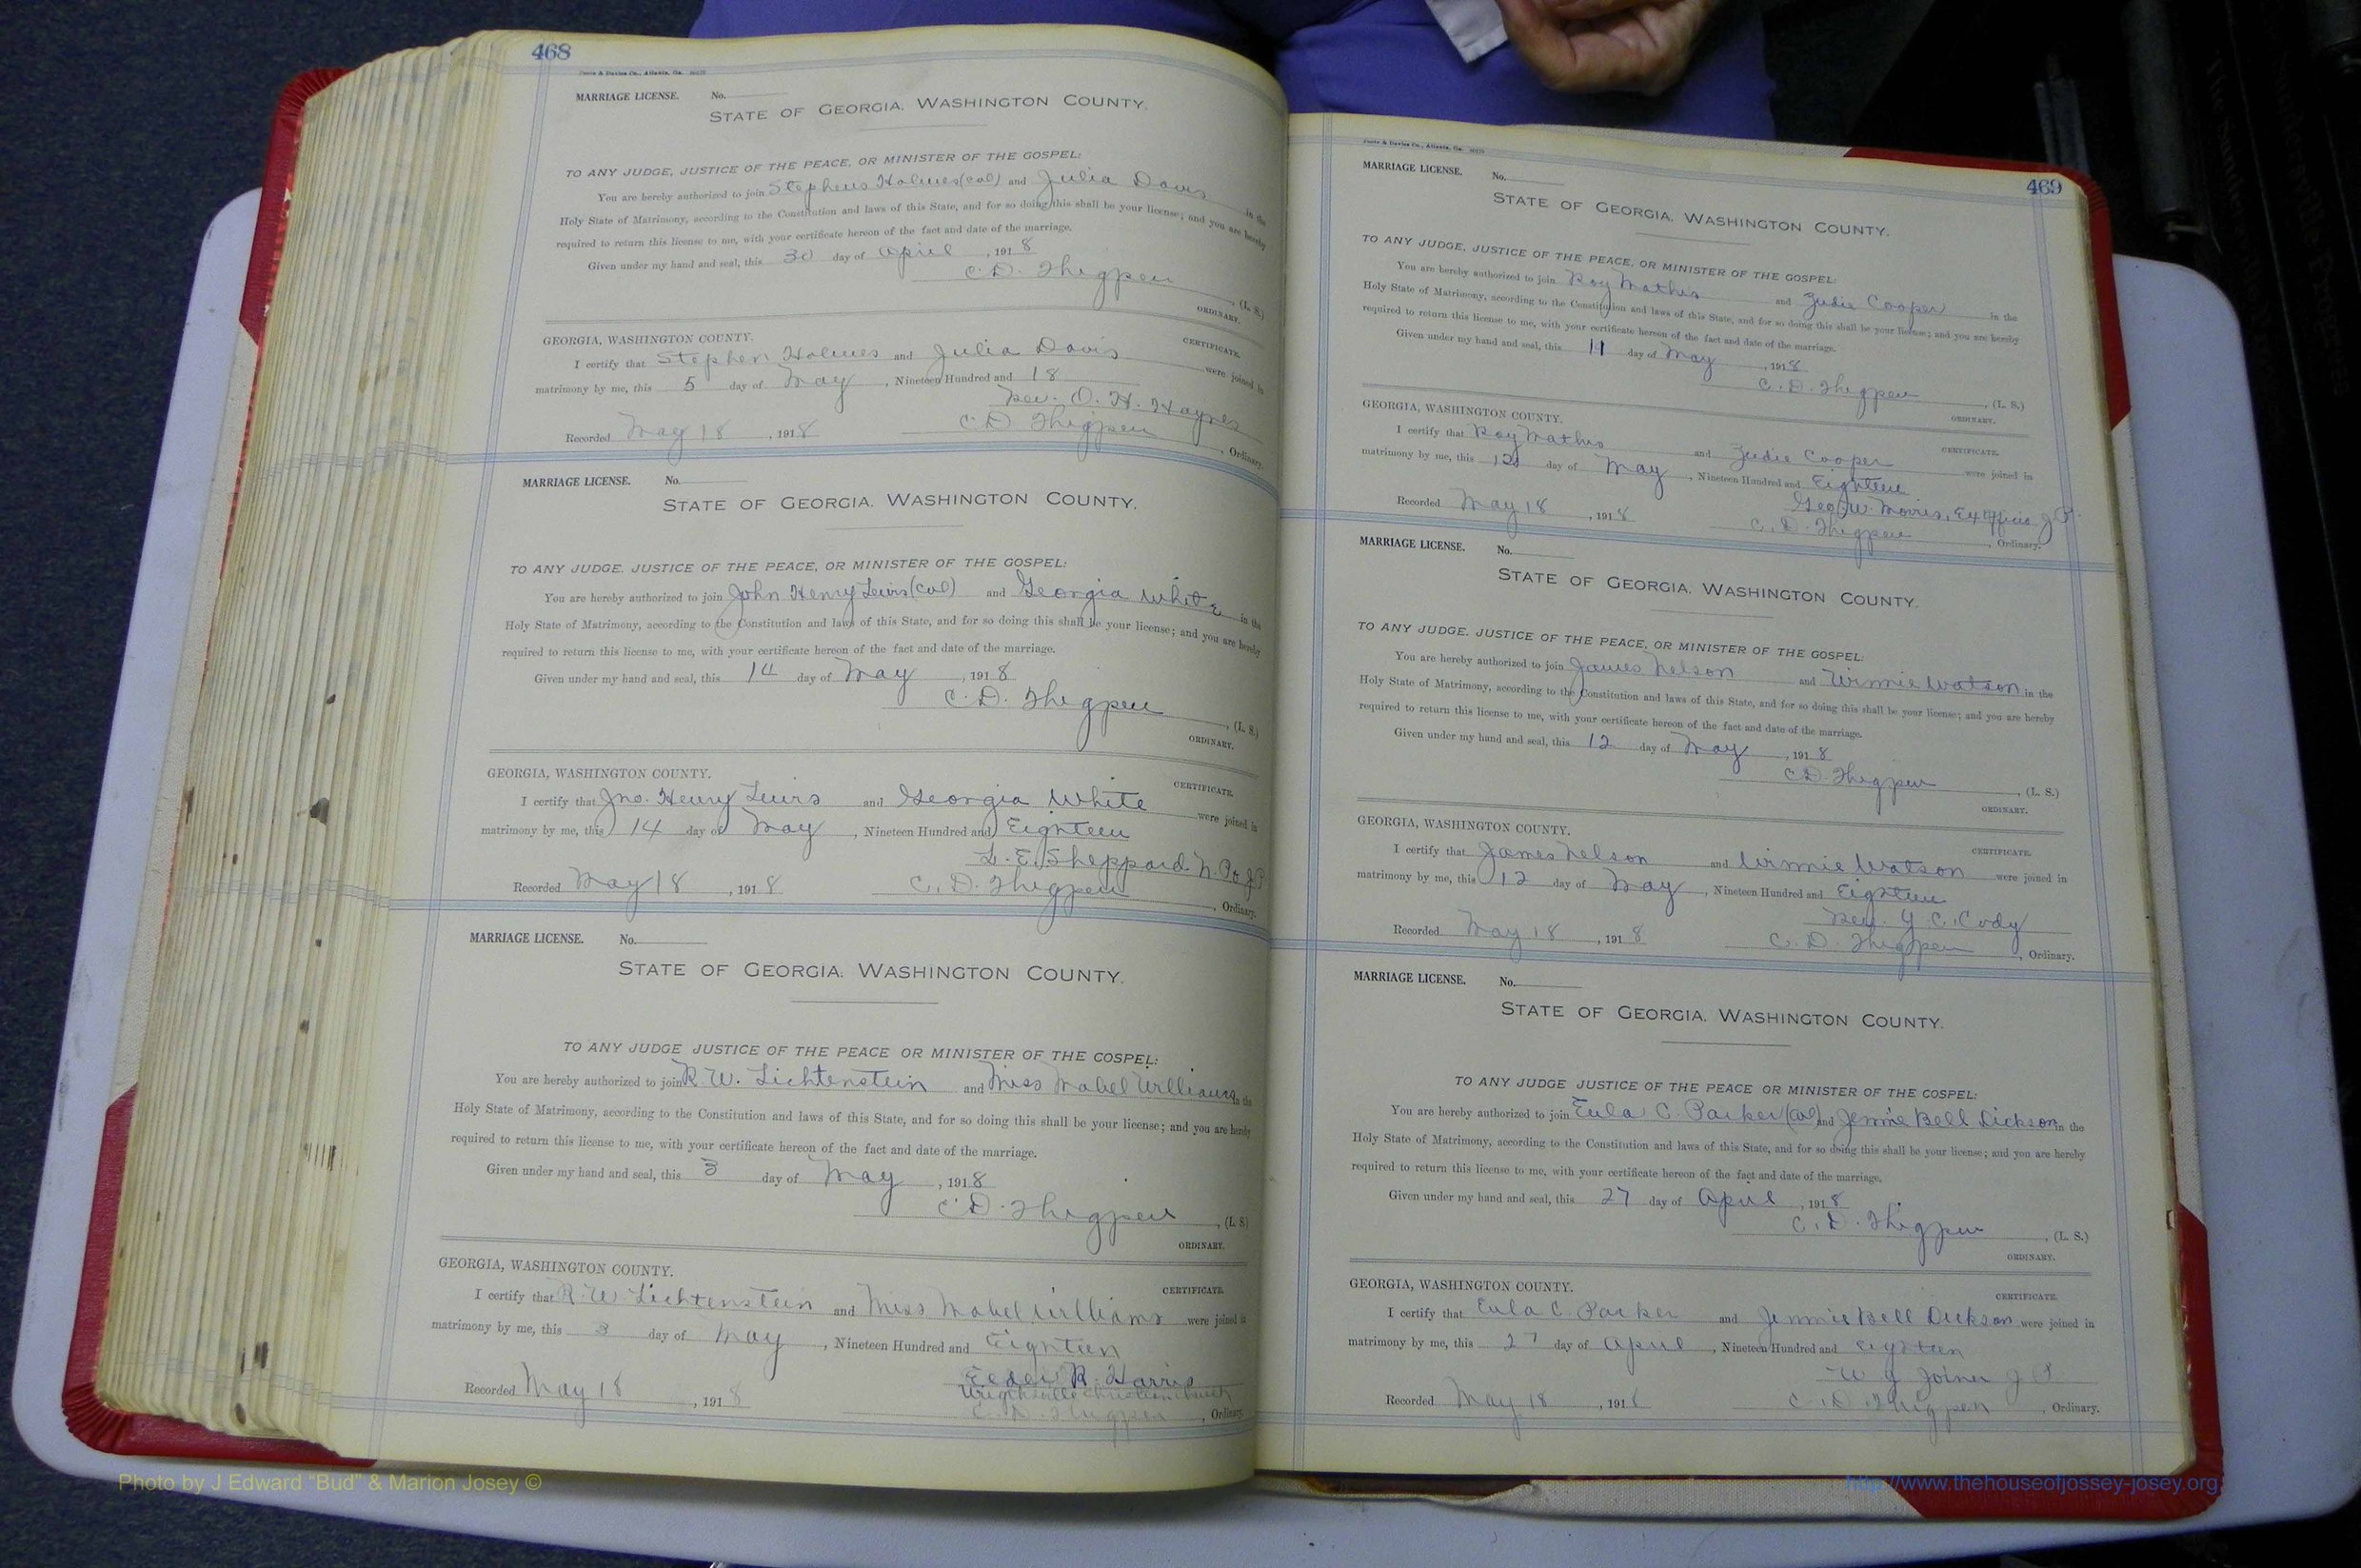 468
MARRIAGE LICENSE. No.
STATE OF GEORGIA. WASHINGTON COUNTY.
TO ANY JUDGE, JUSTICE OF THE PEACE, OR MINISTER OF THE GOSPEL:
You are hereby authorized to join Stephens Holmes (col) and Julia Davis in the
Holy State of Matrimony, according to the Constitution and laws of this State, and for so doing this shall be your license; and you are hereby
required to return this license to me, with your certificate hereon of the fact and date of the marriage.
Given under my hand and seal, this 30 day of April, 1918
C. D. Thigpen, (L. S.)
ORDINARY.
GEORGIA, WASHINGTON COUNTY. CERTIFICATE.
I certify that Stephen Holmes and Julia Davis were joined in
matrimony by me, this 5 day of May, Nineteen Hundred and 18
Rev. O. H. Haynes
Recorded May 18, 1918 C. D. Thigpen, Ordinary.
MARRIAGE LICENSE. No.
STATE OF GEORGIA. WASHINGTON COUNTY.
TO ANY JUDGE. JUSTICE OF THE PEACE, OR MINISTER OF THE GOSPEL:
You are hereby authorized to join John Henry Lewis (Col) and Georgia White in the
Holy State of Matrimony, according to the Constitution and laws of this State, and for so doing this shall be your license; and you are hereby
required to return this license to me, with your certificate hereon of the fact and date of the marriage.
Given under my hand and seal, this 14 day of May, 1918
C. D. Thigpen, (L. S.)
ORDINARY.
GEORGIA, WASHINGTON COUNTY. CERTIFICATE.
I certify that Jno. Henry Lewis and Georgia White were joined in
matrimony by me, this 14 day of May, Nineteen Hundred and Eighteen
L. E. Sheppard N. P.
Recorded May 18, 1918 C. D. Thigpen, Ordinary.
MARRIAGE LICENSE. No.
STATE OF GEORGIA. WASHINGTON COUNTY.
TO ANY JUDGE JUSTICE OF THE PEACE OR MINISTER OF THE GOSPEL:
You are hereby authorized to join R W. Lichtenstein and Miss Mabel Williams in the
Holy State of Matrimony, according to the Constitution and laws of this State, and for so doing this shall be your license; and you are hereby
required to return this license to me, with your certificate hereon of the fact and date of the marriage.
Given under my hand and seal, this 3 day of May, 1918
C. D. Thigpen, (L. S)
ORDINARY.
GEORGIA, WASHINGTON COUNTY. CERTIFICATE.
I certify that R. W Lichtenstein and Miss Mabel Williams were joined in
matrimony by me, this 3 day of May, Nineteen Hundred and Eighteen
Elder R. Harris
Wrightsville Christian Church
Recorded May 18, 1918 C. D. Thigpen, Ordinary.
469
MARRIAGE LICENSE. No.
STATE OF GEORGIA. WASHINGTON COUNTY.
TO ANY JUDGE, JUSTICE OF THE PEACE, OR MINISTER OF THE GOSPEL:
You are hereby authorized to join Roy Mathis and Zudie Cooper in the
Holy State of Matrimony, according to the Constitution and laws of this State, and for so doing this shall be your license; and you are hereby
required to return this license to me, with your certificate hereon of the fact and date of the marriage.
Given under my hand and seal, this 11 day of May, 1918
C. D. Thigpen, (L. S.)
ORDINARY.
GEORGIA, WASHINGTON COUNTY. CERTIFICATE.
I certify that Roy Mathis and Zudie Cooper were joined in
matrimony by me, this 12 day of May, Nineteen Hundred and Eighteen
Geo. W. Morris, Ex Officio J P.
Recorded May 18, 1918 C. D. Thigpen, Ordinary.
MARRIAGE LICENSE. No.
STATE OF GEORGIA. WASHINGTON COUNTY.
TO ANY JUDGE. JUSTICE OF THE PEACE, OR MINISTER OF THE GOSPEL:
You are hereby authorized to join James Nelson and Winnie Watson in the
Holy State of Matrimony, according to the Constitution and laws of this State, and for so doing this shall be your license; and you are hereby
required to return this license to me, with your certificate hereon of the fact and date of the marriage.
Given under my hand and seal, this 12 day of May, 1918
C. D. Thigpen, (L. S.)
ORDINARY.
GEORGIA, WASHINGTON COUNTY. CERTIFICATE.
I certify that James Nelson and Winnie Watson were joined in
matrimony by me, this 12 day of May, Nineteen Hundred and Eighteen
Rev. Y. C. Cody
Recorded May 18, 1918 C. D. Thigpen, Ordinary.
MARRIAGE LICENSE. No.
STATE OF GEORGIA. WASHINGTON COUNTY.
TO ANY JUDGE JUSTICE OF THE PEACE OR MINISTER OF THE GOSPEL:
You are hereby authorized to join Eula C. Parker (Col) and Jennie Bell Dickson in the
Holy State of Matrimony, according to the Constitution and laws of this State, and for so doing this shall be your license; and you are hereby
required to return this license to me, with your certificate hereon of the fact and date of the marriage.
Given under my hand and seal, this 27 day of April, 1918
C. D. Thigpen, (L. S.)
ORDINARY.
GEORGIA, WASHINGTON COUNTY. CERTIFICATE.
I certify that Eula C Parker and Jennie Bell Dickson were joined in
matrimony by me, this 27 day of April, Nineteen Hundred and eighteen
W J Joiner J P
Recorded May 18, 1918 C. D. Thigpen, Ordinary.
Photo by J Edward "Bud" & Marion Josey ©
http://www.thehouseofjossey-josey.org